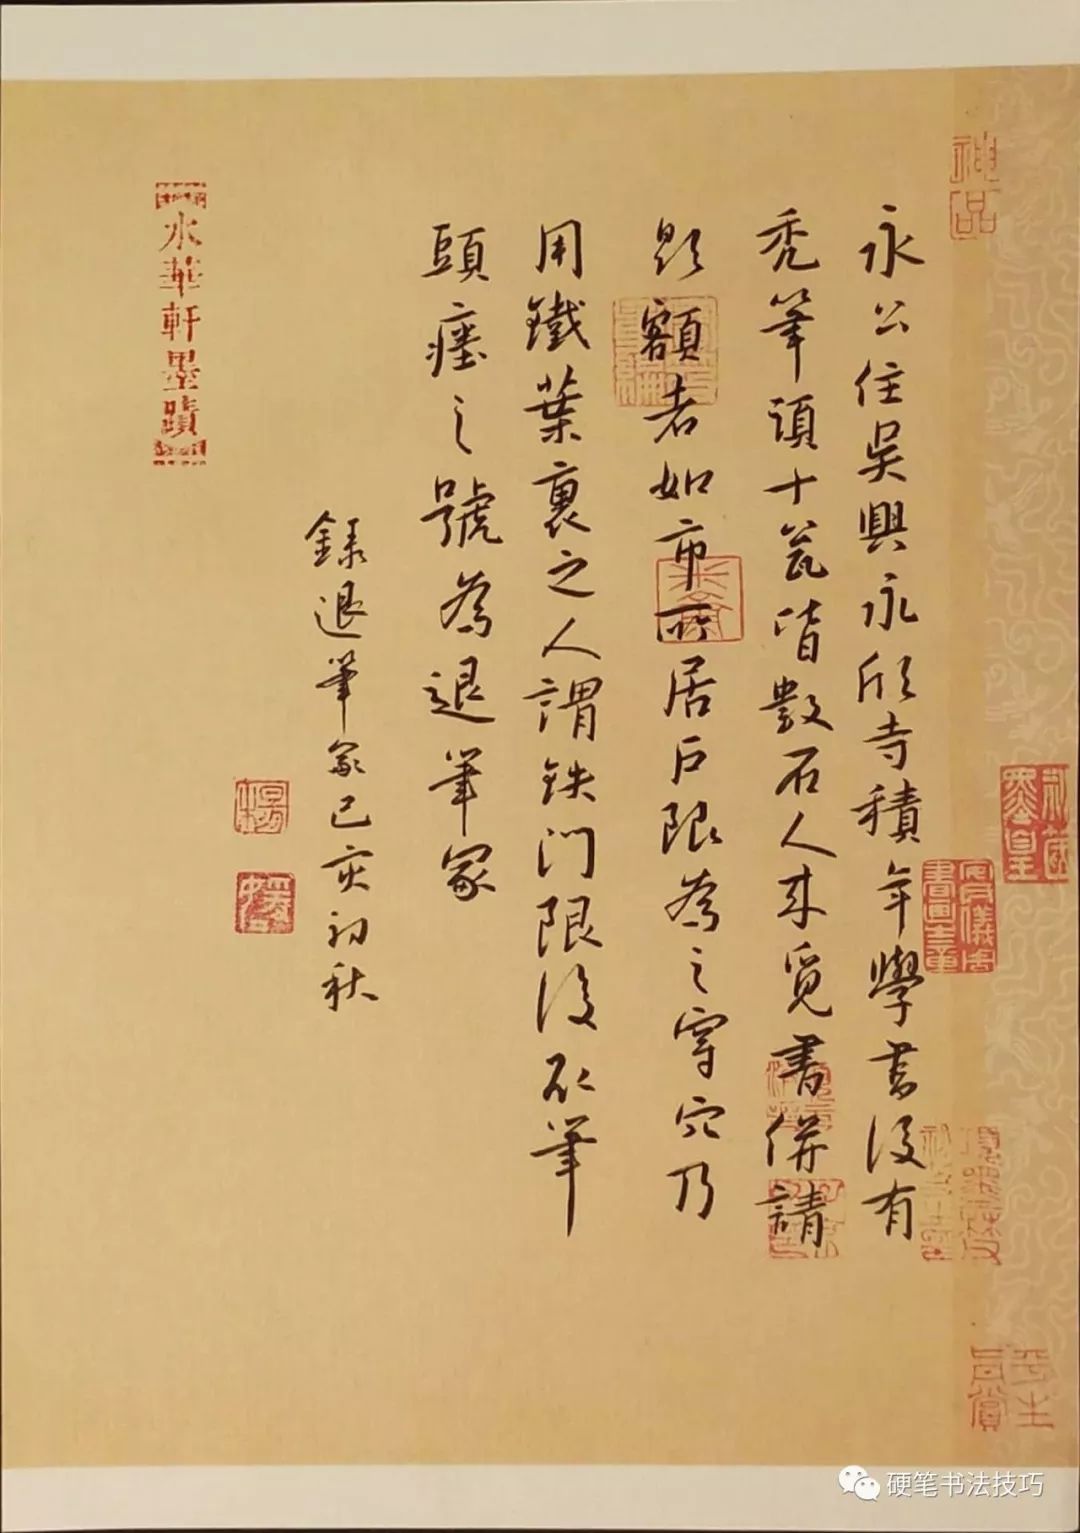 神品
永公住吳興永欣寺積年學書後有
禿筆頭十瓮皆數石人來覓書併請
題額者如市所居戶限為之穿穴乃
用鐵葉裹之人謂鉄門限後取筆
頭瘞之號為退筆冢
錄退筆冢己亥初秋
水華軒墨蹟
硬笔书法技巧